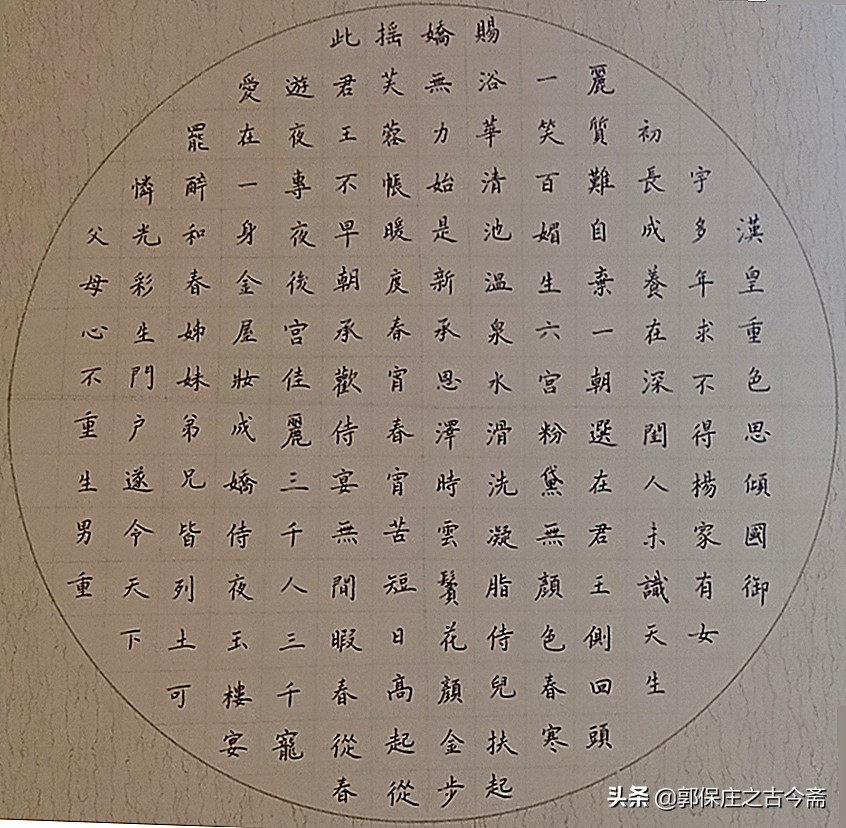 漢皇重色思傾國御
宇多年求不得楊家有女
初長成養在深閨人未識天生
麗質難自棄一朝選在君王側回頭
一笑百媚生六宮粉黛無顏色春寒
賜浴華清池温泉水滑洗凝脂侍兒扶起
嬌無力始是新承恩澤時雲鬢花顏金步
摇芙蓉帳暖度春宵春宵苦短日高起從
此君王不早朝承歡侍宴無間暇春從春
遊夜專夜後宮佳麗三千人三千寵
愛在一身金屋妝成嬌侍夜玉樓宴
罷醉和春姊妹弟兄皆列土可
憐光彩生門户遂令天下
父母心不重生男重
头条 @郭保庄之古今斋